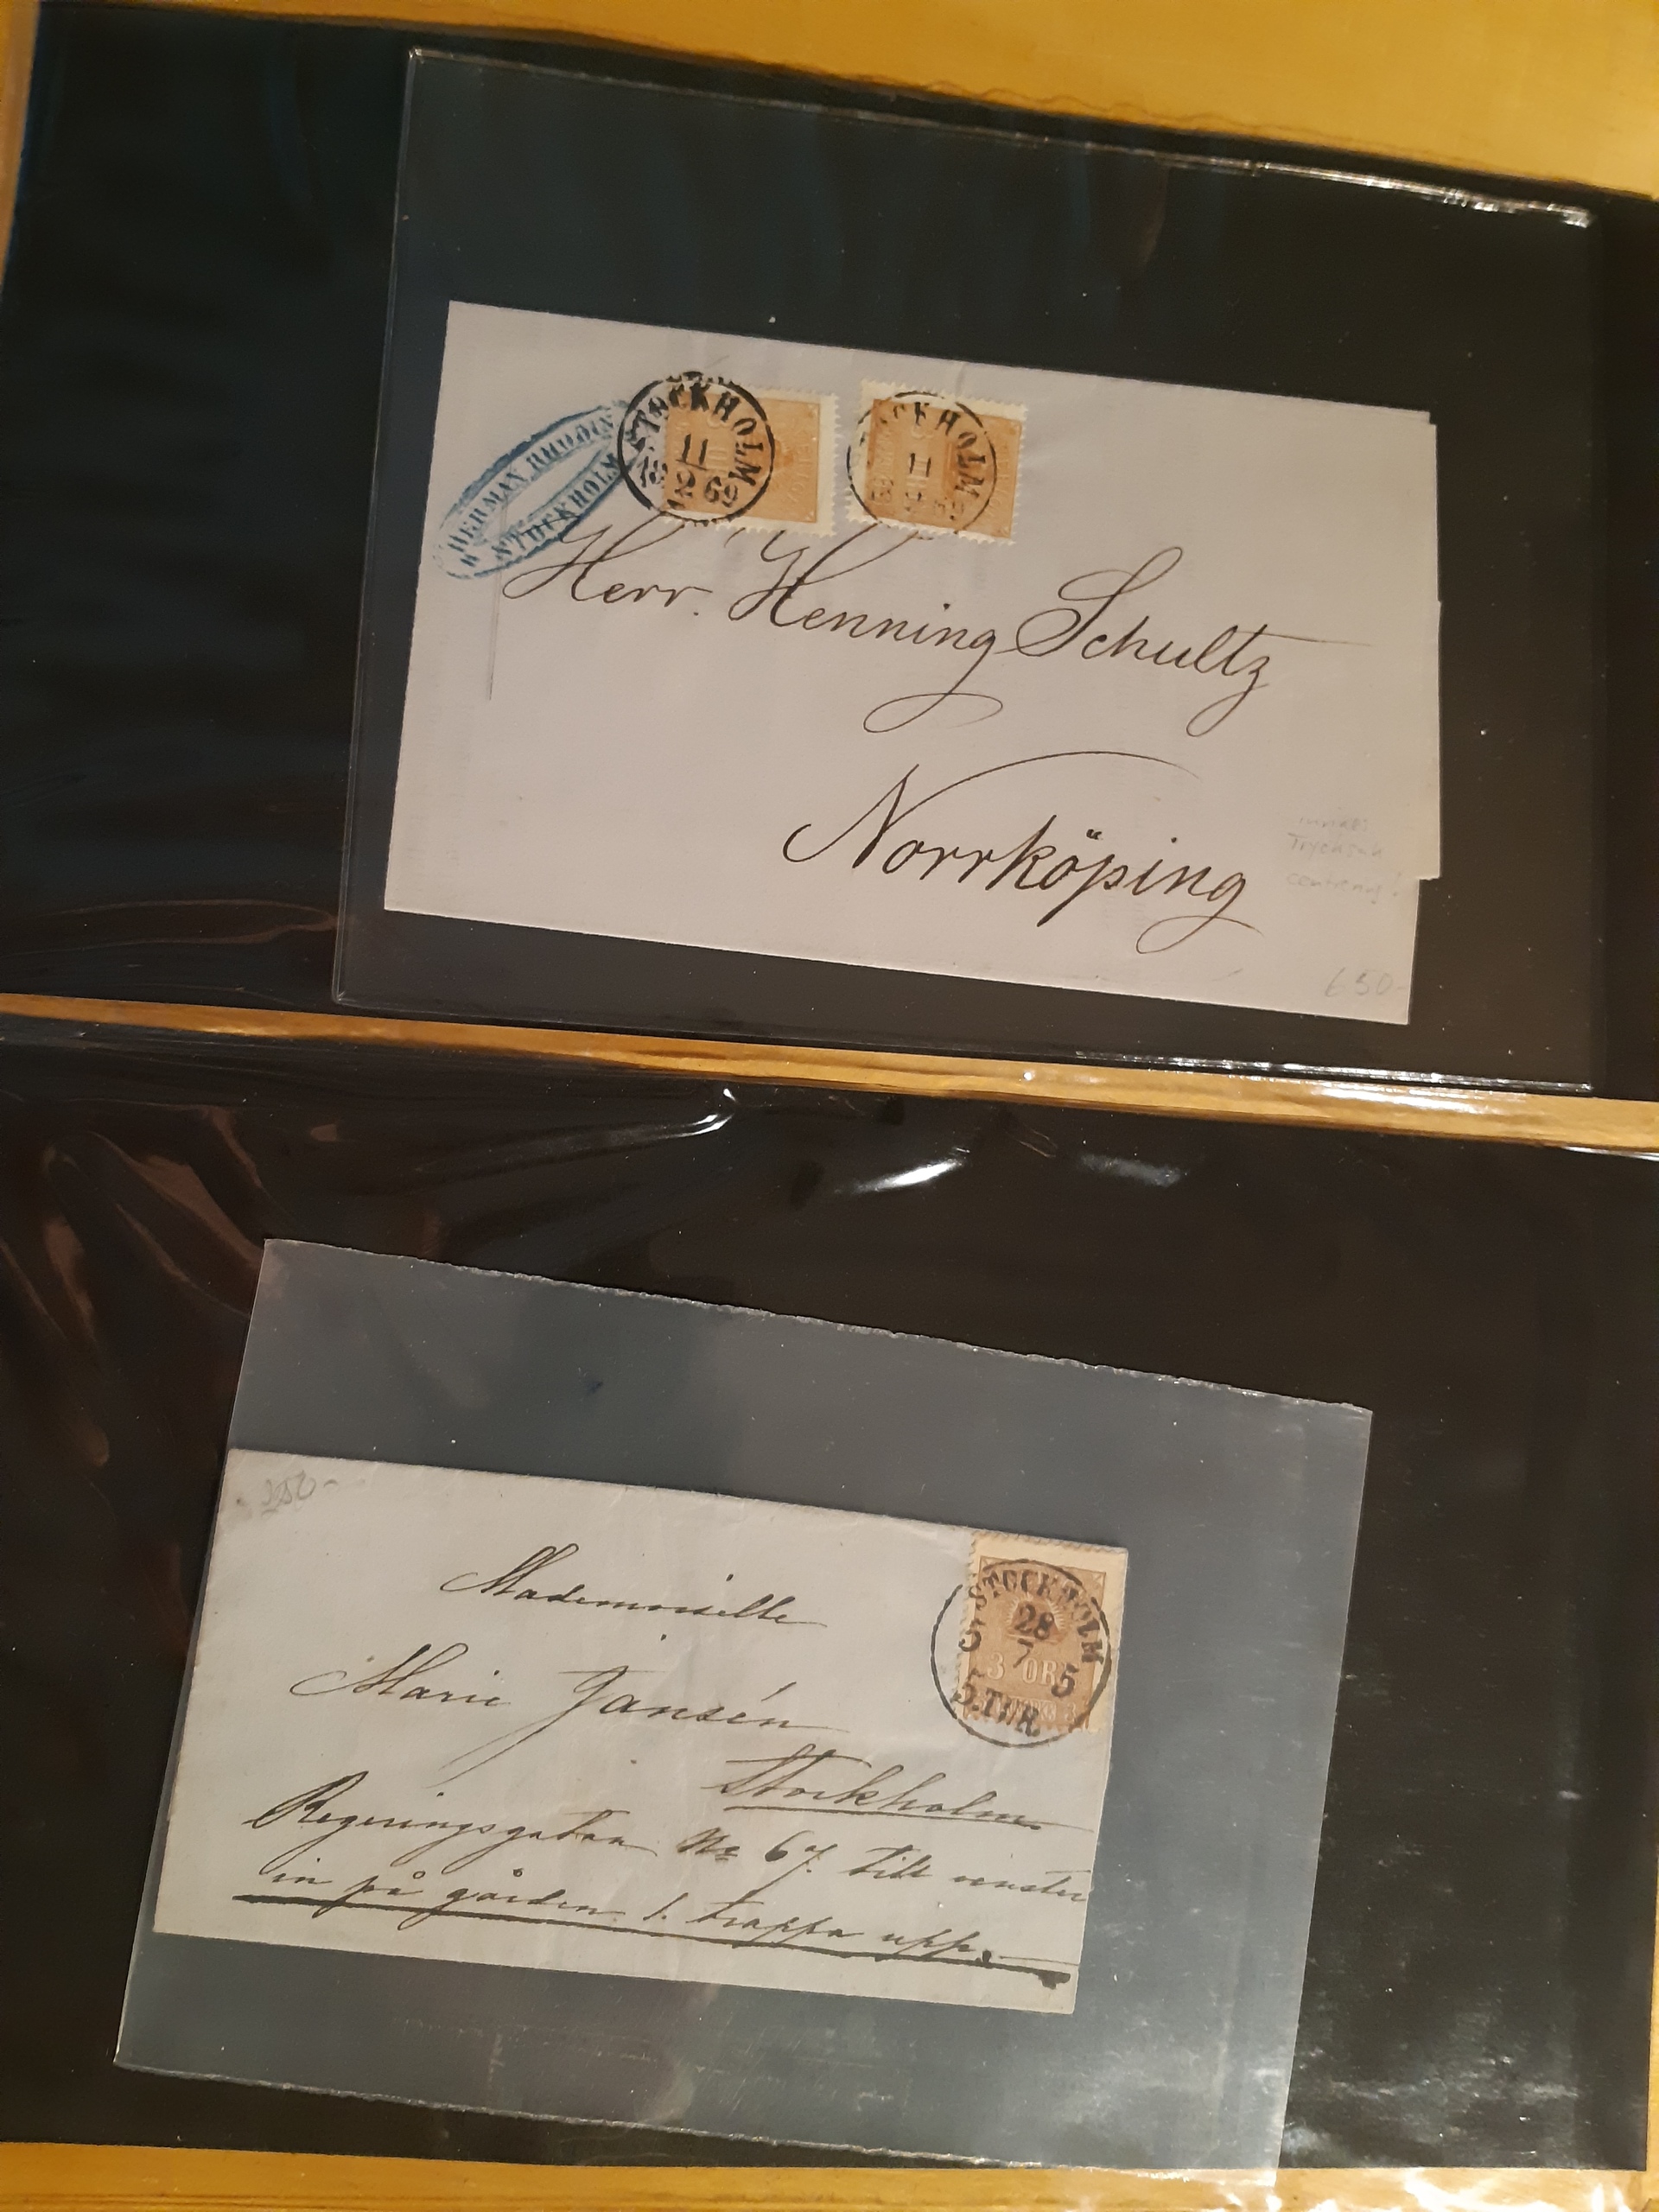 HERMAN RHODIN
STOCKHOLM
STOCKHOLM
11
2 69
STOCKHOLM
11
Herr. Henning Schultz
Norrköping
Trycksak
centrering!
650-
250-
Mademoiselle
Marie Jansén
Stockholm
Regeringsgatan No 67. till venster
in på gården 1. trappa upp.
STOCKHOLM
28
7
5
3 ÖRE
5.TUR.